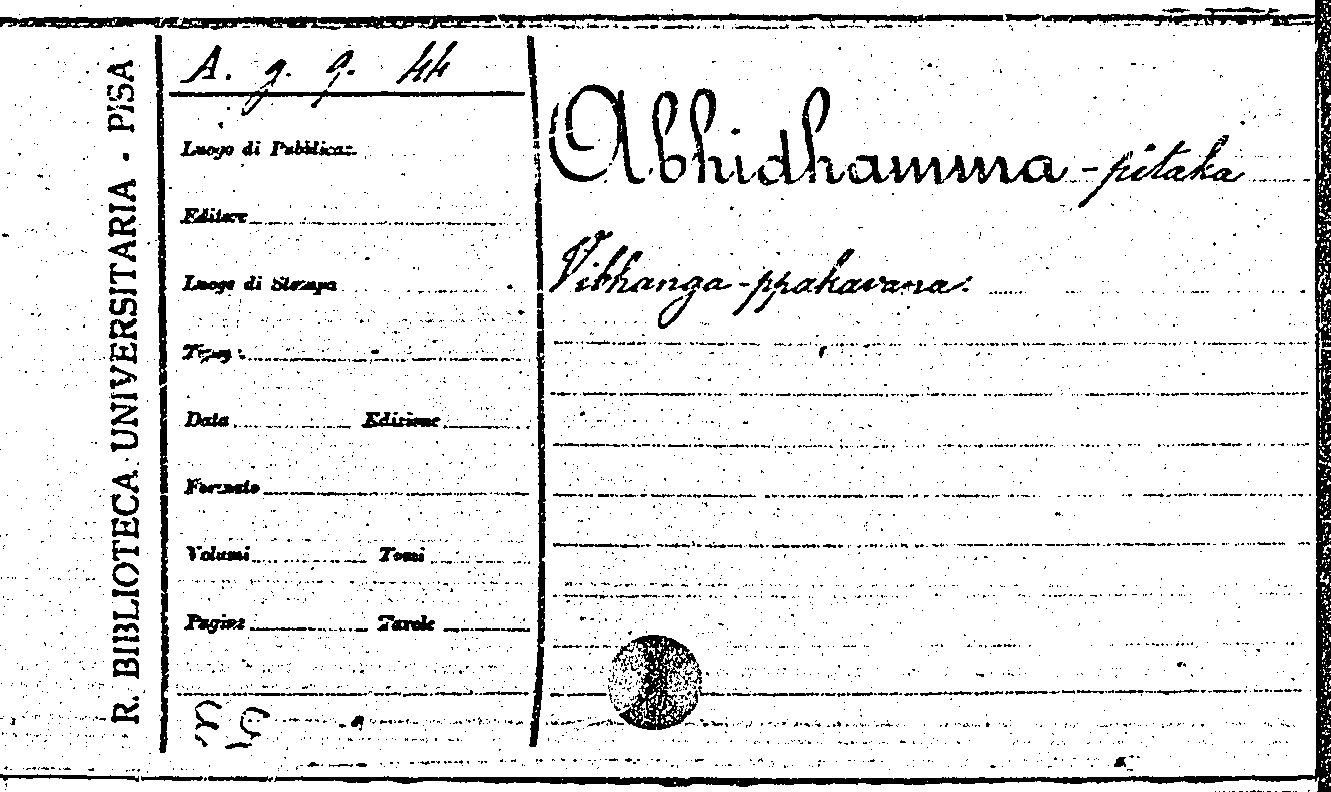 R. BIBLIOTECA UNIVERSITARIA - PISA
A. g. 9. 44
Luogo di Pubblicaz.
Editore
Luogo di Stampa
Tipog.
Data Edizione
Formato
Volumi Tomi
Pagine Tavole
Abhidhamma - pitaka
Vibhanga - ppakarana.